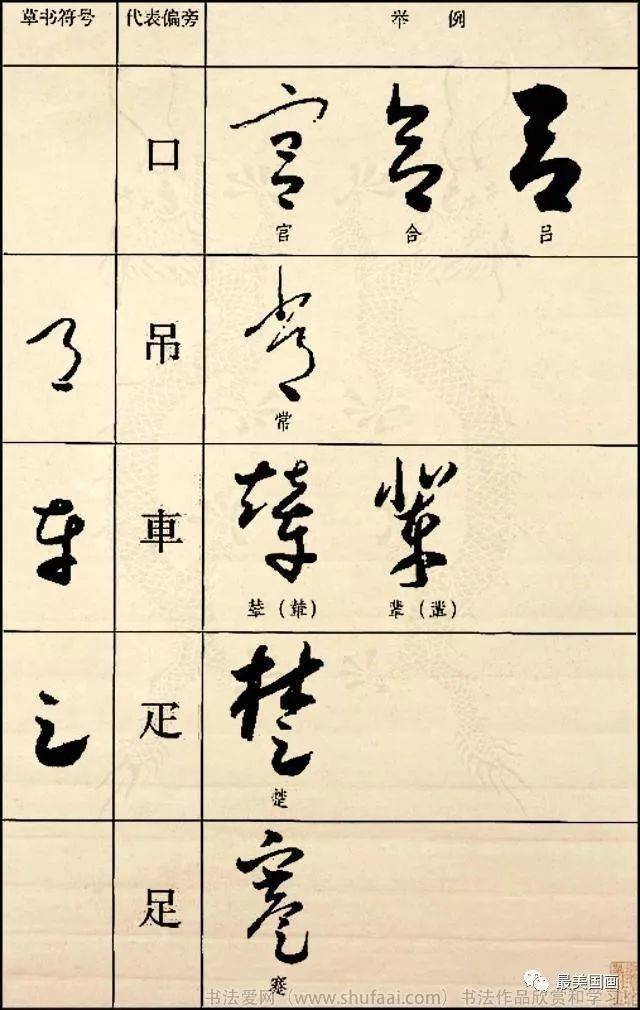 草书符号 代表偏旁 举例
口
官 合 吕
吊
常
車
疋
楚
足
蹇
最美国画
书法爱网（www.shufaai.com）书法作品欣赏和学习